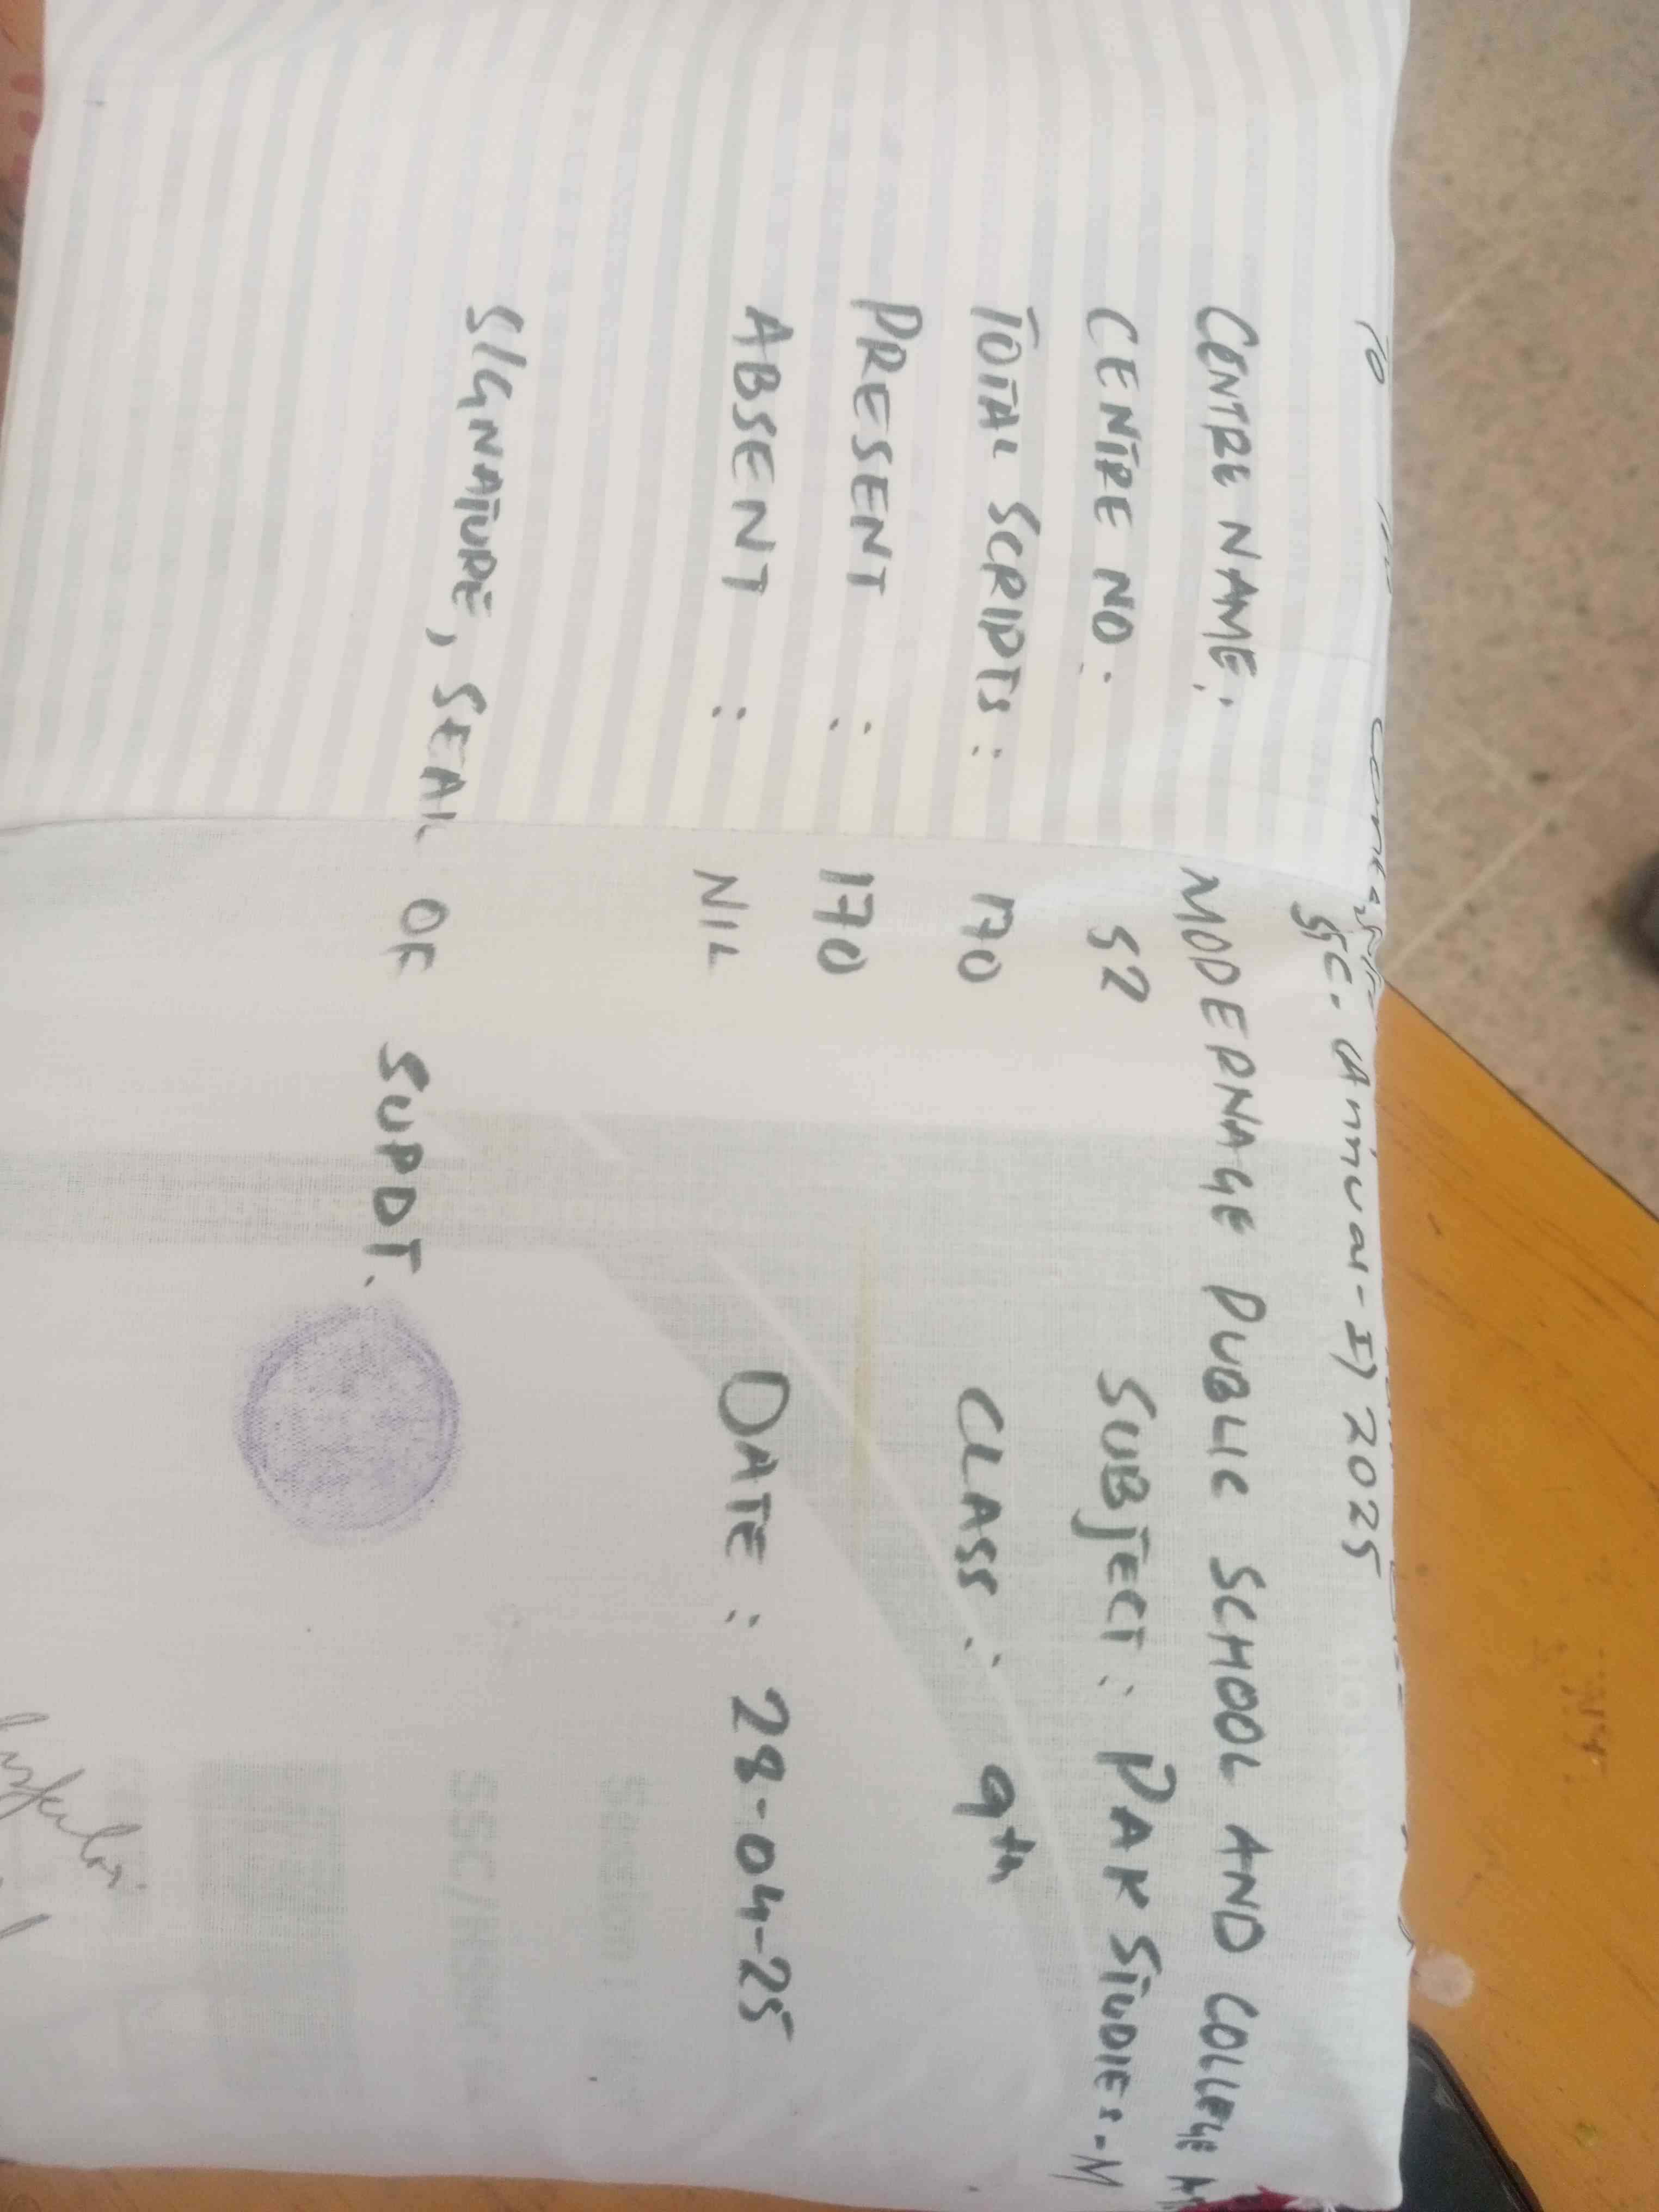 SSC. Annual-I) 2025
CENTRE NAME: MODERNAGE PUBLIC SCHOOL AND COLLEGE
CENTRE NO: 52 SUBJECT: PAK STUDIES-M
TOTAL SCRIPTS: 170 CLASS: 9th
PRESENT : 170
ABSENT : NIL DATE : 28-04-25
SIGNATURE, SEAL OF SUPDT.
SSC/HSSC